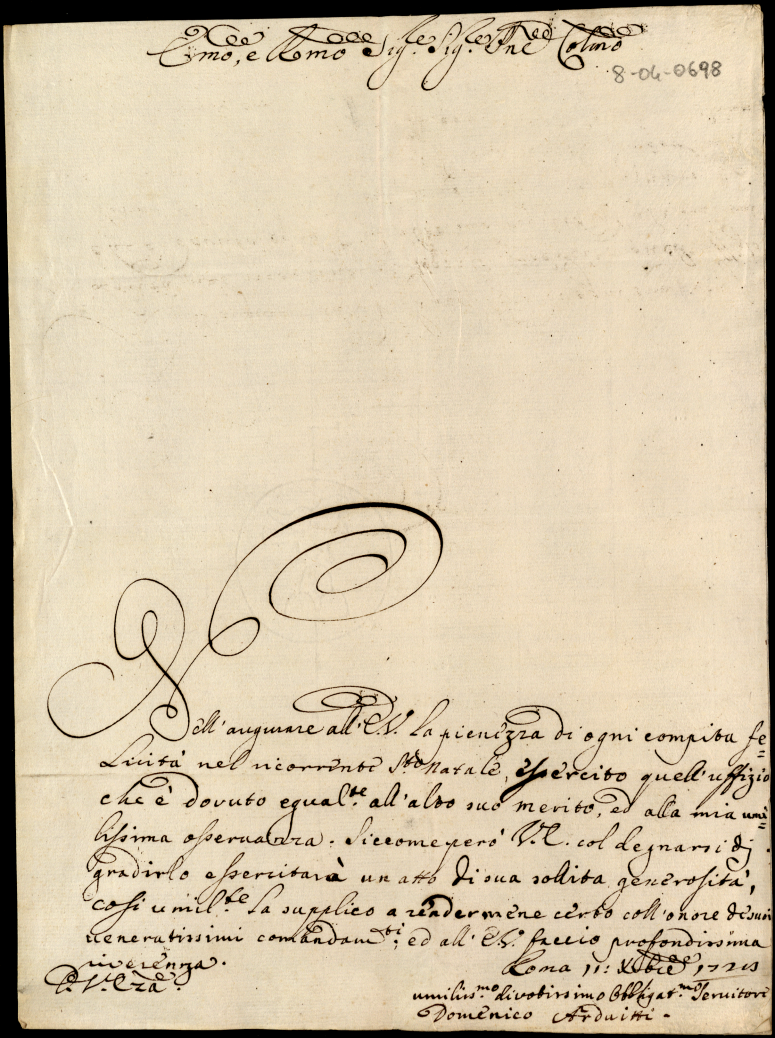 Emo, e Rmo Sig.re Sig.re Pne Colmo
8-04-0698
Nell'augurare all'E.V. la pienezza di ogni compita fe=
licità nel ricorrente Sto Natale, essercito quell'uffizio
che è dovuto egual.te all'alto suo merito, ed alla mia umi=
lissima osservanza. Siccome però V.E. col degnarsi di
gradirlo essercitarà un atto di sua solita generosità,
così umil.te la supplico a rendermene certo coll'onore de suoi
veneratissimi comandam.ti, ed all'E.V. faccio profondissima
riverenza.
Roma 11: Xbre
D. V. Eza.
umiliss.mo divotissimo Obbligat.mo Servitore
Domenico Arduitti.